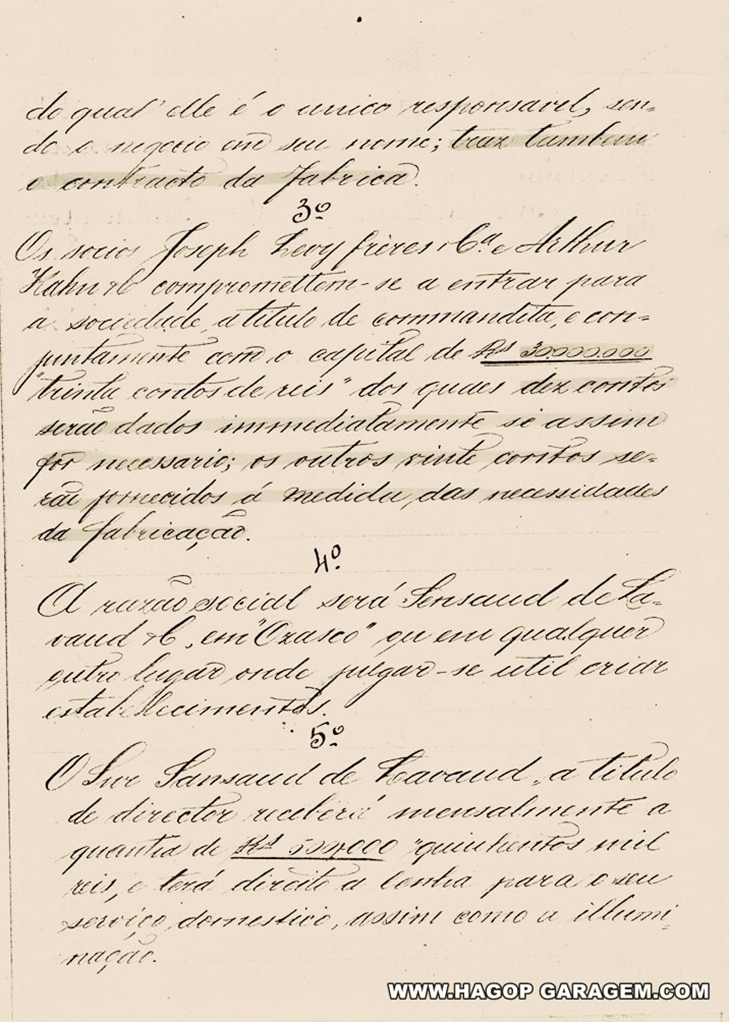 do qual elle é o unico responsavel, sen-
do o negocio em seu nome; traz tambem
o contracto da fabrica.
3º
Os socios Joseph Levy frères & Cª e Arthur
Kahn & C compromettem-se a entrar para
a sociedade, a titulo de commandita, e con-
juntamente com o capital de Rs 30.000.000
"trinta contos de reis" dos quaes dez contos
serão dados immediatamente si assim
fôr necessario; os outros vinte contos se-
rão fornecidos á medida das necessidades
da fabricação.
4º
A razão social será Sensaud de La-
vaud & C, em "Ozasco" ou em qualquer
outro lugar onde julgar-se util criar
estabelecimentos.
5º
O Snr Sansaud de Lavaud, a titulo
de director receberá mensalmente a
quantia de Rs 500,000 "quinhentos mil
reis, e terá direito a lenha para o seu
serviço domestico, assim como a illumi-
nação.
WWW.HAGOP GARAGEM.COM